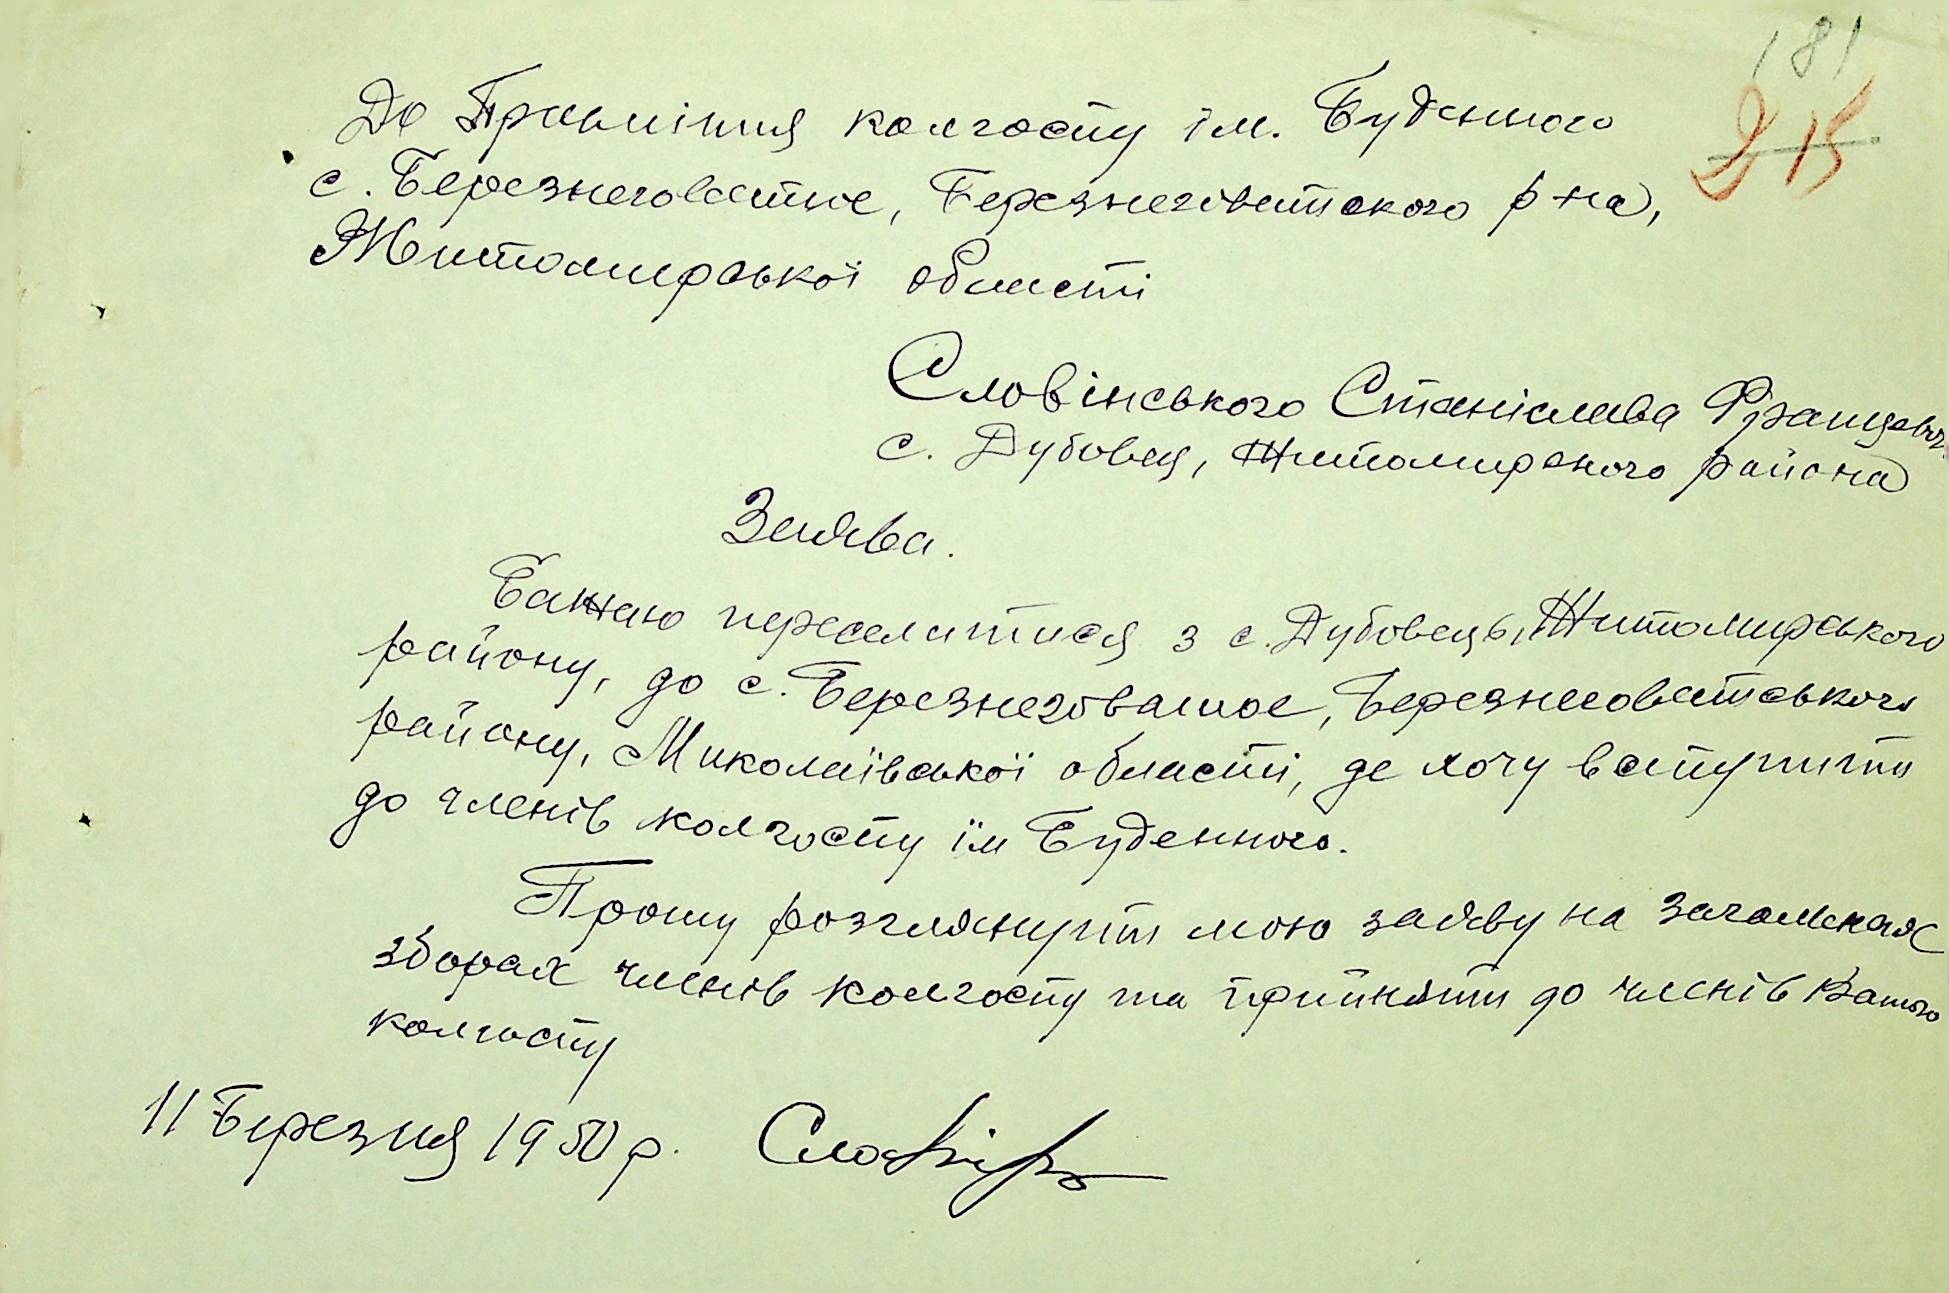 181
215
До Правління колгоспу ім. Буденного
с. Березнеговатое, Березнегіватського р-на,
Житомирської області
Словінського Станіслава Францевич
с. Дубовец, Житомирского района
Заява.
Бажаю переселитися з с. Дубовець, Житомирського
району, до с. Березнеговатое, Березнеговатського
району, Миколаївської області, де хочу вступити
до членів колгоспу їм Буденного.
Прошу розглянути мою заяву на загальних
зборах членів колгоспу та прийняти до членів Вашого
колгоспу
11 Березня 1950 р.